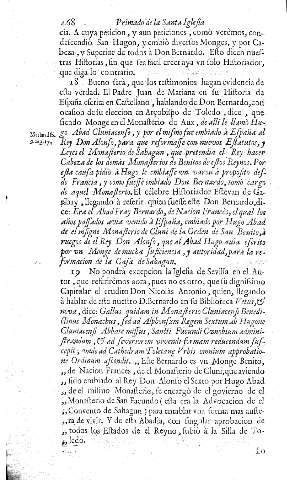 268 Primado de la Santa Iglesia
cia. A cuya peticion, y sun peticiones, como verèmos, con-
descendió San Hugon, y embiò diversos Monges, y por Ca-
beza, y Superior de todos à Don Bernardo. Esto dicen nues-
tras Historias, sin que sea facil creer aya un solo Historiador,
que diga lo contrario.
18 Bueno será, que los testimonios hagan evidencia de
esta verdad. El Padre Juan de Mariana en su Historia de
España escrita en Castellano, hablando de Don Bernardo, con
ocasion de su eleccion en Arçobispo de Toledo, dice, que
siendo Monge en el Monasterio de Aux, de alli le llamò Hu-
go Abad Cluniacense, y por el mismo fue embiado à España al
Rey Don Alonso, para que reformasse con nuevos Estatutos, y
Leyes el Monasterio de Sahagun, que pretendia el Rey hacer
Cabeza de los demàs Monasterios de Benitos de estos Reynos. Por
esta causa pidio à Hugo le embiasse un varon à proposito des-
de Francia, y como fuesse embiado Don Bernardo, tomò cargo
de aquel Monasterio. El celebre Historiador Estevan de Ga-
ribay, llegando à referir quien fuesse este Don Bernardo, di-
ce: Era el Abad Fray Bernardo, de Nacion Francès, el qual los
años passados avia venido à España, embiado por Hugo Abad
de el insigne Monasterio de Cluni de la Orden de San Benito, à
ruegos de el Rey Don Alonso, que al Abad Hugo avia escrito
por un Monge de mucha suficiencia, y autoridad, para la re-
formacion de la Casa de Sahagun.
19 No pondrà excepcion la Iglesia de Sevilla en el Au-
tor, que referirèmos aora, pues no es otro, que su dignissimo
Capitular el erudito Don Nicolàs Antonio, quien, llegando
à hablar de este nuestro D. Bernardo en su Biblioteca Vetus, &
nova, dice: Gallus quidam in Monasterio Cluniacensi Benedi-
ctinus Monachus, sed ad Alphonsum Regem Sextum ab Hugone
Cluniacensi Abbate missus, Sancti Facundi Cœnobium admini-
strandum, & ad severiorem vivendi formam reducendum sus-
cepit; mox ad Cathedram Toletanæ Urbis omnium approbatio-
ne Ordinum ascendit. „ Este Bernardo es un Monge Benito,
„ de Nacion Francès, de el Monasterio de Cluni, que aviendo
„ sido embiado al Rey Don Alonso el Sexto por Hugo Abad
„ de el mismo Monasterio, se encargò de el govierno de el
„ Monasterio de San Facundo (esta era la Advocacion de el
„ Convento de Sahagun) para entablar una forma mas auste-
„ ra de vivir. Y de esta Abadìa, con singular aprobacion de
„ todos los Estados de el Reyno, subiò à la Silla de To-
„ ledo.